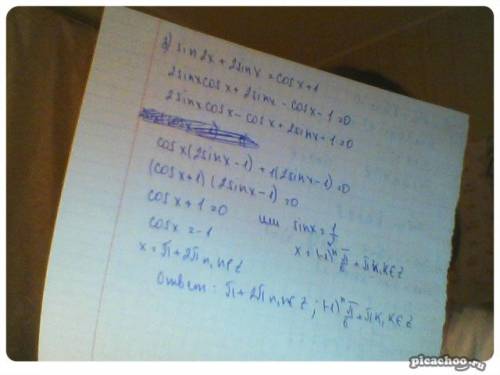 3) sin2x + 2sinx = cosx + 1
2sinxcosx + 2sinx - cosx - 1 = 0
2sinxcosx - cosx + 2sinx - 1 = 0
cosx(2sinx - 1) + 1(2sinx - 1) = 0
(cosx + 1)(2sinx - 1) = 0
cosx + 1 = 0 или sinx = 1/2
cosx = -1 x = (-1)^k π/6 + πk, k∈Z
x = π + 2πn, n∈Z
Ответ: π + 2πn, n∈Z; (-1)^k π/6 + πk, k∈Z
picachoo.ru